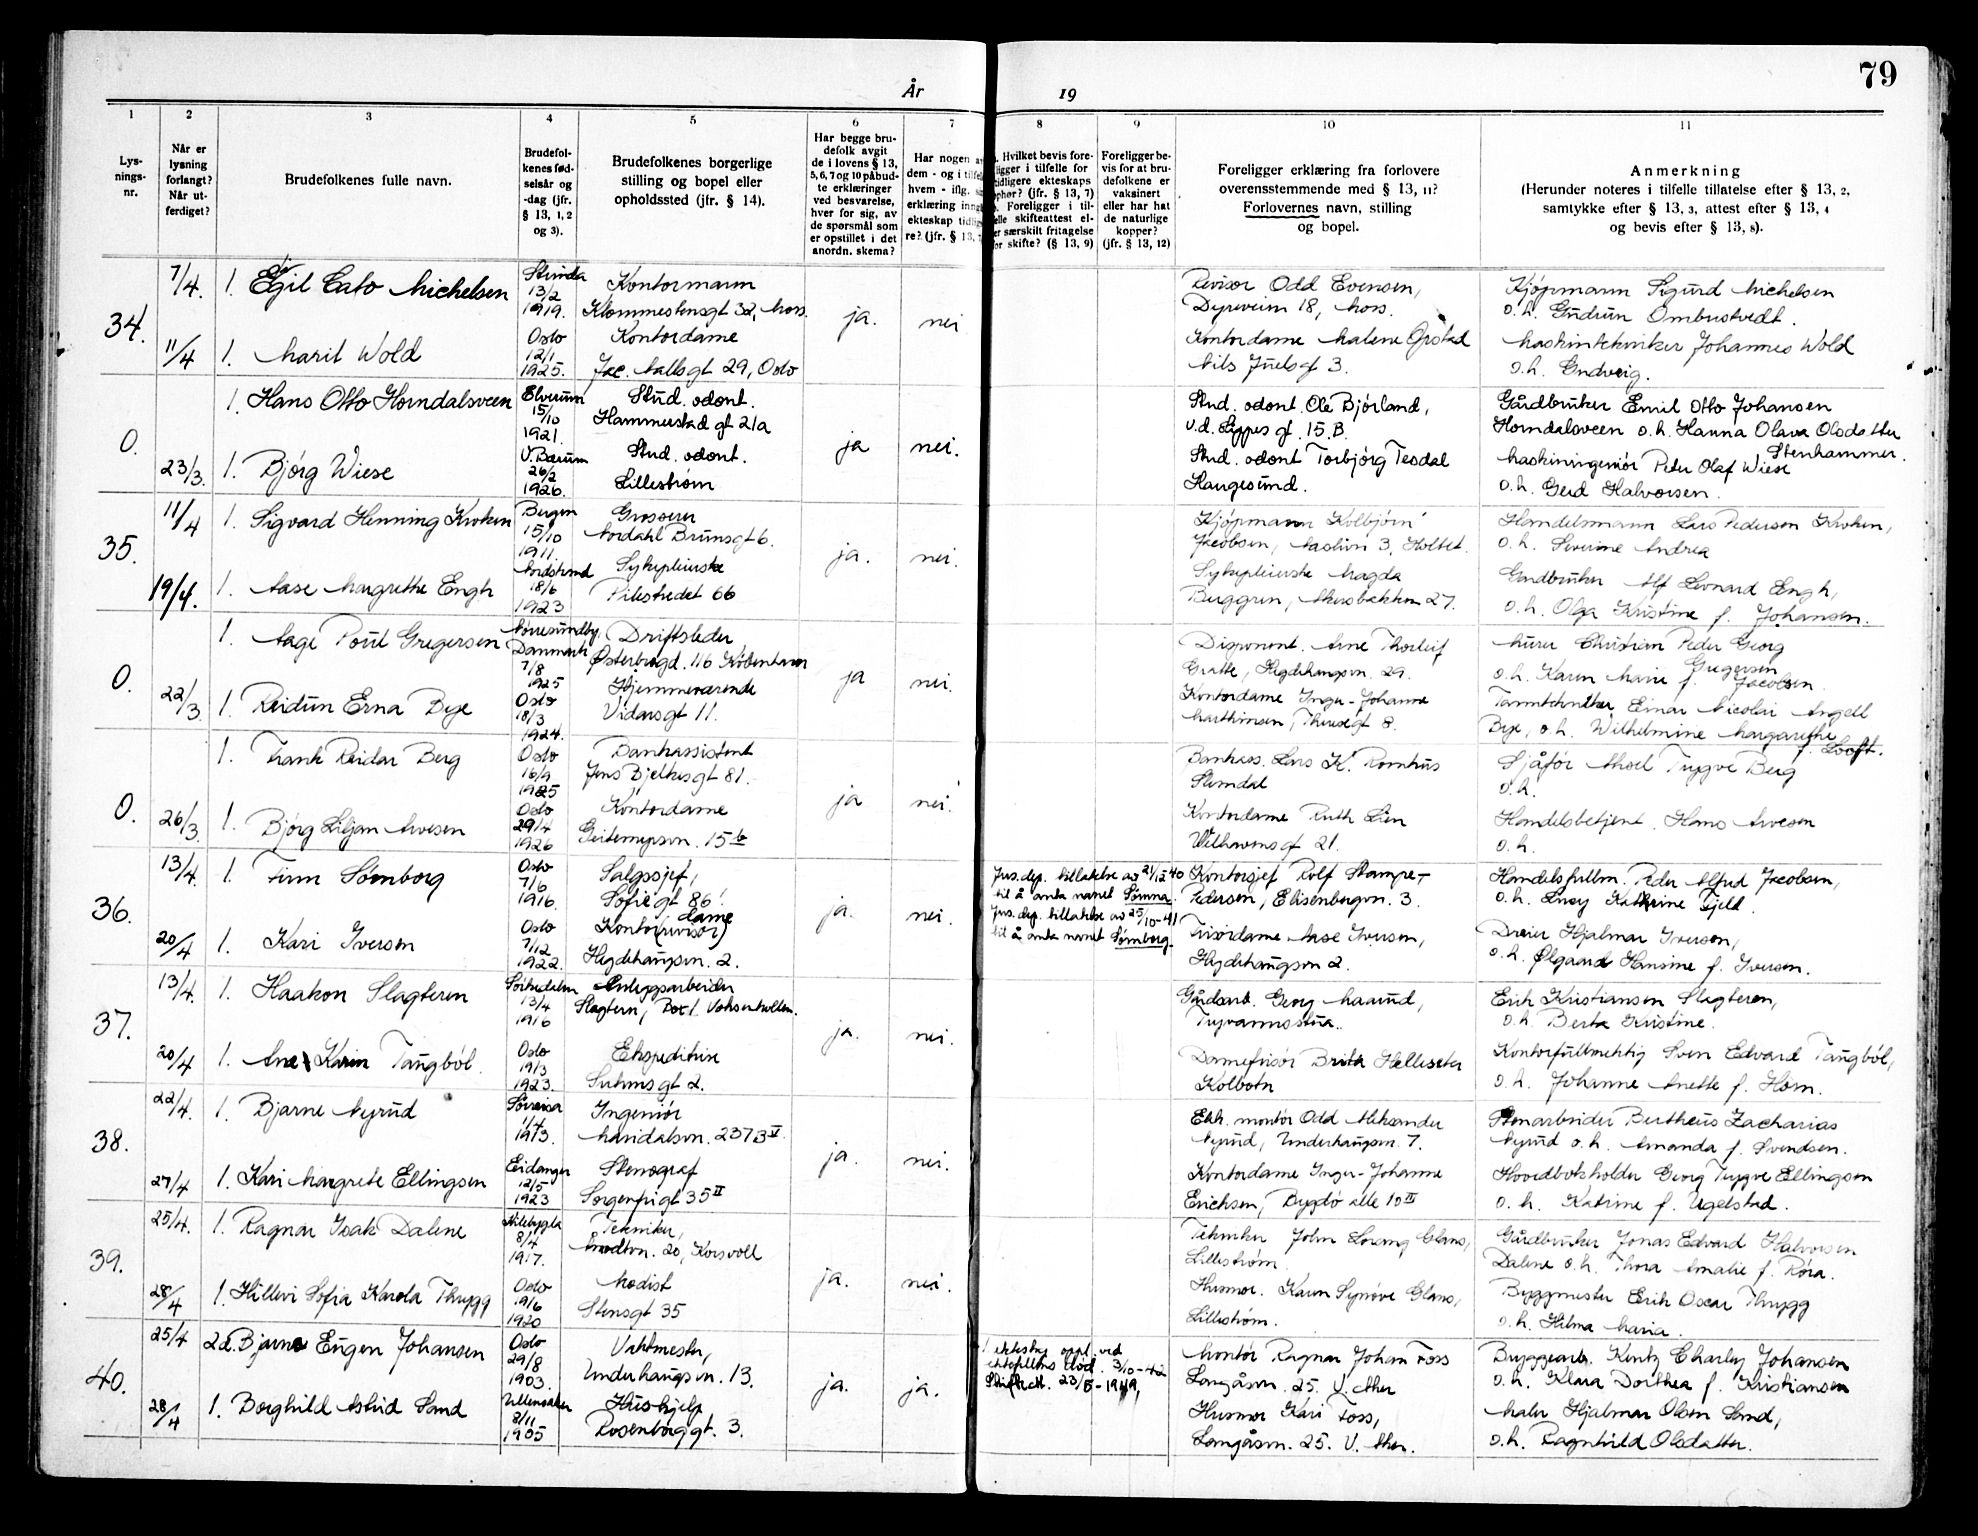 79
År 19
1
Lys-
nings-
nr.
2
Når er
lysning
forlangt?
Når ut-
ferdiget?
3
Brudefolkenes fulle navn.
4
Brudefol-
kenes fød-
selsår og
-dag (jfr.
§ 13, 1, 2
og 3).
5
Brudefolkenes borgerlige
stilling og bopel eller
opholdssted (jfr. § 14).
6
Har begge bru-
defolk avgit
de i lovens § 13,
5, 6, 7 og 10 påbud-
te erklæringer
ved besvarelse,
hver for sig, av
de spørsmål som
er opstillet i det
anordn. skema?
7
Har nogen
dem - og i
hvem - iflg.
erklæring
ekteskap
re? (jfr. § 13,
8
Hvilket bevis fore-
ligger i tilfelle for
tidligere ekteskaps
ophør? (jfr. § 13, 7)
Foreligger i til-
felle skifteattest el-
er særskilt fritagelse
for skifte? (§ 13, 9)
9
Foreligger be-
vis for at bru-
defolkene er
vaksinert
eller har hat
de naturlige
kopper?
(jfr. § 13, 12)
10
Foreligger erklæring fra forlovere
overensstemmende med § 13, 11?
Forlovernes navn, stilling
og bopel.
11
Anmerkning
(Herunder noteres i tilfelle tillatelse efter § 13, 2,
samtykke efter § 13, 3, attest efter § 13, 4
og bevis efter § 13, 8).
34.
7/4.
1. Egil Cato Michelsen
Strinda
13/2
1919.
Kontormann
Klommestensgt 32, Moss.
ja.
nei
Revisor Odd Evensen,
Dyreveien 18, Moss.
Kjøpmann Sigurd Michelsen
o.h. Gudrun Ombustvedt.
11/4
1. Marit Wold
Oslo
12/1
1925.
Kontordame
Jac. Aallsgt 29, Oslo
Kontordame Malene Ørstad
Nils Juelsgt 3.
Maskintekniker Johannes Wold
o.h. Gudveig.
0.
1. Hans Otto Horndalsveen
Elverum
15/10
1921.
Stud. odont.
Hammerstad gt 21a
ja
nei.
Stud. odont. Ole Bjørland,
v.d. Lippes gt. 15.B.
Gårdbruker Emil Otto Johansen
Horndalsveen o.h. Hanna Olava Olsdatter
Stenhammer.
23/3.
1. Bjørg Wiese
V. Bærum
26/2
1926.
Stud. odont.
Lillestrøm
Stud. odont Torbjørg Tesdal
Haugesund.
Maskiningeniør Peter Olaf Wiese
o.h. Gerd Halvorsen.
35.
11/4
1. Sigvard Henning Kroken
Bergen
15/10
1911.
Grosserer
Nordahl Brunsgt 6.
ja.
nei.
Kjøpmann Kolbjørn
Jacobsen, Aaslivn 3, Holtet.
Handelsmann Lars Pedersen Kroken,
o.h. Severine Andrea
19/4.
1. Aase Margrethe Engh
Nordstrand
18/6
1923
Sykepleierske
Pilestredet 66
Sykepleierske Magda
Berggren, Akersbakken 27.
Gårdbruker Alf Leonard Engh,
o.h. Olga Kristine f. Johansen.
0.
1. Aage Poul Gregersen
Nørresundby,
Danmark
7/8
1925
Driftsleder
Østerbrogd. 116 København
ja
nei.
Disponent. Arne Thorleif
Gratte, Hegdehaugsvn. 29.
Murer Christian Peder Georg
Gregersen
o.h. Karen Marie f. Jacobsen.
22/3
1. Reidun Erna Bye
Oslo
18/3
1924.
Hjemmeværende
Vidarsgt 11.
Kontordame Inger-Johanne
Marthinsen, Theresegt 8.
Tanntekniker Einar Nicolai Angell
Bye, o.h. Wilhelmine Margarethe
f. Looft.
0.
1. Frank Reidar Berg
Oslo
16/9
1925
Bankassistent
Jens Bjelkesgt 81.
ja
nei.
Bankass. Lars K. Romhus
Slemdal
Sjåfør Aksel Trygve Berg
o.h.
26/3
1. Bjørg Liljan Arvesen
Oslo
29/4
1926
Kontordame
Geitemyrsvn. 15 b
Kontordame Ruth Lien
Welhavensgt 21.
Handelsbetjent Hans Arvesen
o.h.
36.
13/4.
1. Finn Sømborg
Oslo
7/6
1916.
Salgssjef,
Sofiegt 86.
ja.
nei.
Jus. dep. tillatelse av 21/12-40
til å anta navnet Sønna.
Jus. dep. tillatelse av 25/10-41
til å anta navnet Sømborg.
Kontorsjef Rolf Stampe-
Pedersen, Elisenbergvn. 3.
Handelsfullm. Peder Alfred Jacobsen,
o.h. Lucy Kathrine Fjeld.
20/4
1. Kari Iversen
Oslo
7/12
1922.
Kontordame
(revisor)
Hegdehaugsvn. 2.
Frisørdame Aase Iversen,
Hegdehaugsvn 2.
Dreier Hjalmar Iversen,
o.h. Ølgaard Hansine f. Iversen.
37.
13/4.
1. Haakon Slagteren
Sørkedalen
13/4
1916
Anleggsarbeider
Slagtern, Voksenkollen.
ja.
nei.
Gårdsarb. Georg Maarud,
Tryvannsstua.
Erik Kristiansen Slagteren,
o.h. Berte Kristine.
20/4
1. Karin Taugbøl.
Oslo
19/3
1923.
Ekspeditrise
Suhmsgt 2.
Damefrisør Brita Helliseter
Kolbotn
Kontorfullmektig Sven Edvard Taugbøl,
o.h. Johanne Anette f. Horn.
38.
22/4.
1. Bjarne Nyrud
Sørreisa
1/4
1913.
Ingeniør
Maridalsvn. 237 B II.
ja.
nei.
Elek. montør Odd Aleksander
Nyrud, Underhaugsvn. 7.
Stenarbeider Bertheus Zacharias
Nyrud o.h. Amanda f. Svendsen.
27/4
1. Kari Margrete Ellingsen
Eidanger
12/5
1923
Stenograf
Sorgenfrigt 35 II
Kontordame Inger-Johanne
Erichsen, Bygdø alle 10 II
Hovedbokholder Georg Trygve Ellingsen
o.h. Katrine f. Ugelstad.
39.
25/4.
1. Ragnar Isak Dalene
8/4
1917.
Tekniker,
20, Korsvoll
ja.
nei.
Tekniker John Lorang Glans,
Lillestrøm.
Gårdbruker Jonas Edvard Halvorsen
Dalene o.h. Thora Amalie f. Røra.
28/4
1. Hillevi Sofia Karola Thrygg
Oslo
19/6
1920
Modist
Stensgt 35
Husmor. Karen Synøve Glans,
Lillestrøm.
Byggmester Erik Oscar Thrygg
o.h. Hilma Maria.
40.
25/4
2. Bjarne Eugen Johansen
Oslo
29/8
1903.
Vaktmester,
Underhaugsvn. 13.
ja.
ja.
1 ekteskap oppl. ved
ektefellens død. 3/10-42
Skifteatt. 23/5-1949,
Montør Ragnar Johan Foss
Langåsvn. 25. V. Aker
Byggearb. Kentz Charley Johansen
o.h. Klara Dorthea f. Kristiansen
28/4
1. Borghild Astrid Sand
Ullensaker
2/11
1905
Hushjelp
Rosenborggt. 3.
Husmor Kari Foss,
Langåsvn. 25. V. Aker.
Maler Hjalmar Olsen Sand,
o.h. Ragnhild Olsdatter.